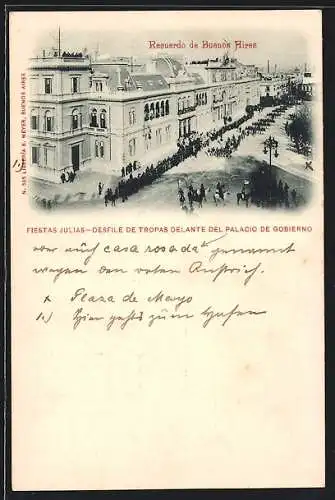 Recuerdo de Buenos Aires
N. 545 LIBRERÍA E. NEVER, BUENOS AIRES
1.)
FIESTAS JULIAS—DESFILE DE TROPAS DELANTE DEL PALACIO DE GOBIERNO
oder auch "casa rosada" genannt
wegen den roten Anstrich.
x Plaza de Mayo
1.) Hier gehts zum Hafen